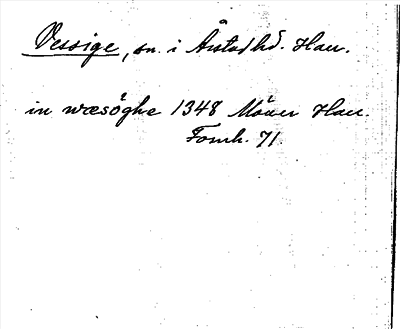 Vessige, sn. i Årstad hd. Hall.
in wæsöghe 1348 Måner Hall.
Fornh. 71.